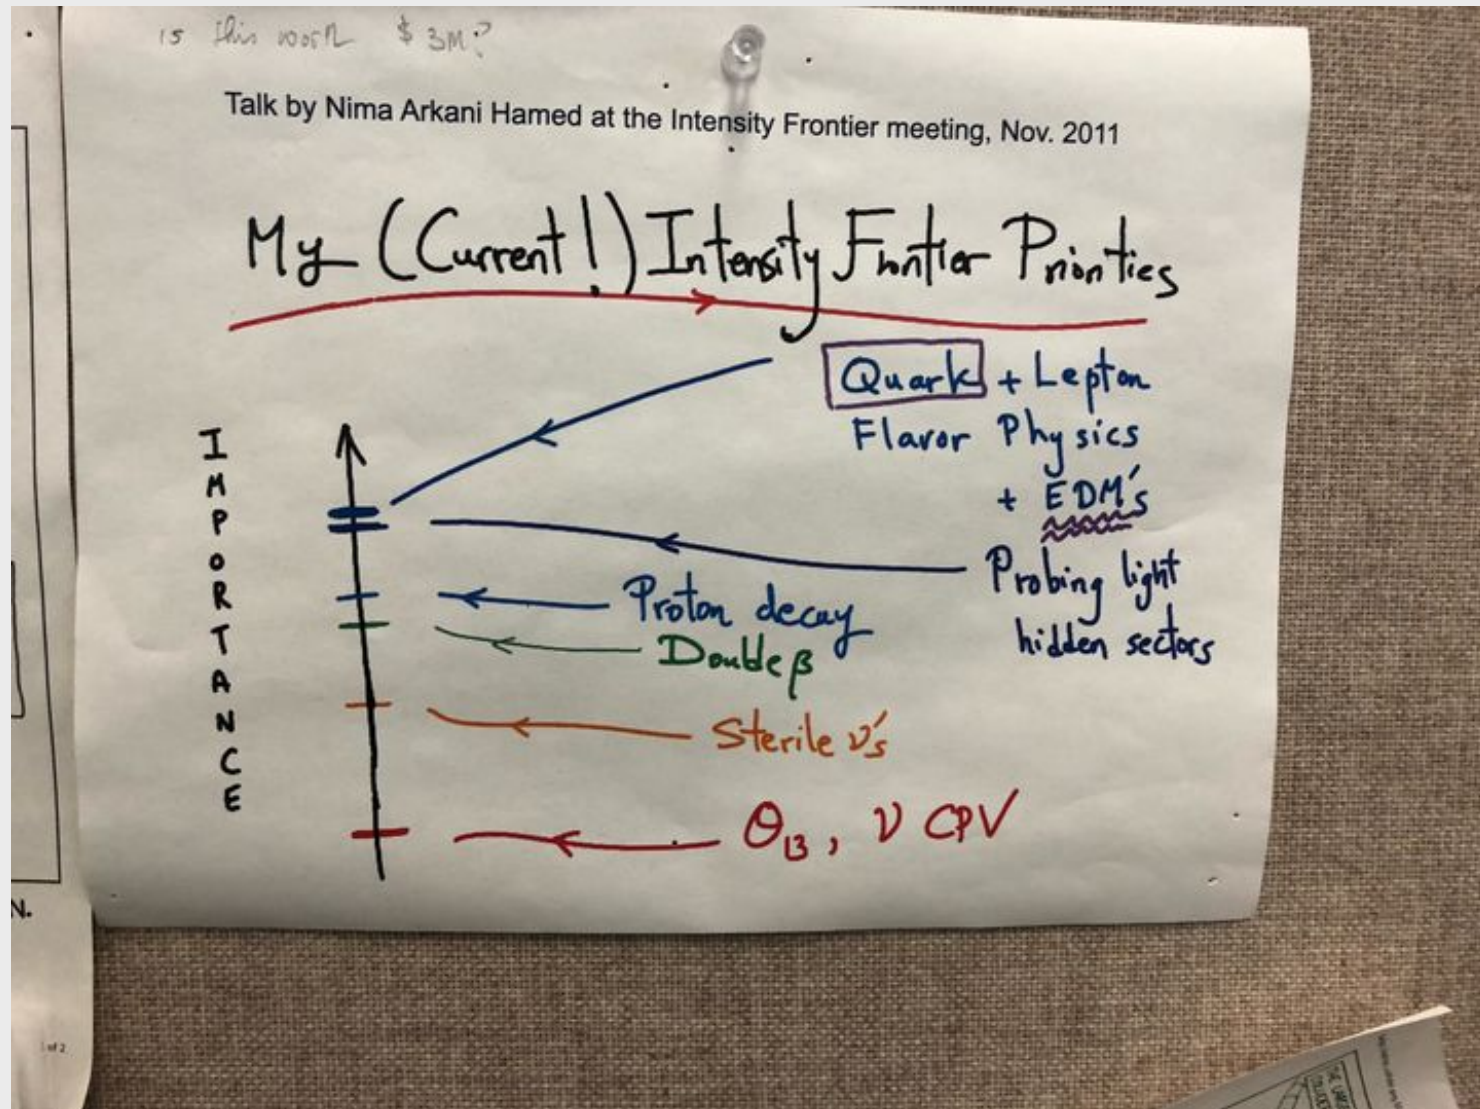 is this worth $ 3M?
Talk by Nima Arkani Hamed at the Intensity Frontier meeting, Nov. 2011
My (Current!) Intensity Frontier Priorities
Quark + Lepton
Flavor Physics
+ EDM's
IMPORTANCE
Probing light
hidden sectors
Proton decay
Double β
Sterile ν's
θ13, ν CPV
N.
1 of 2